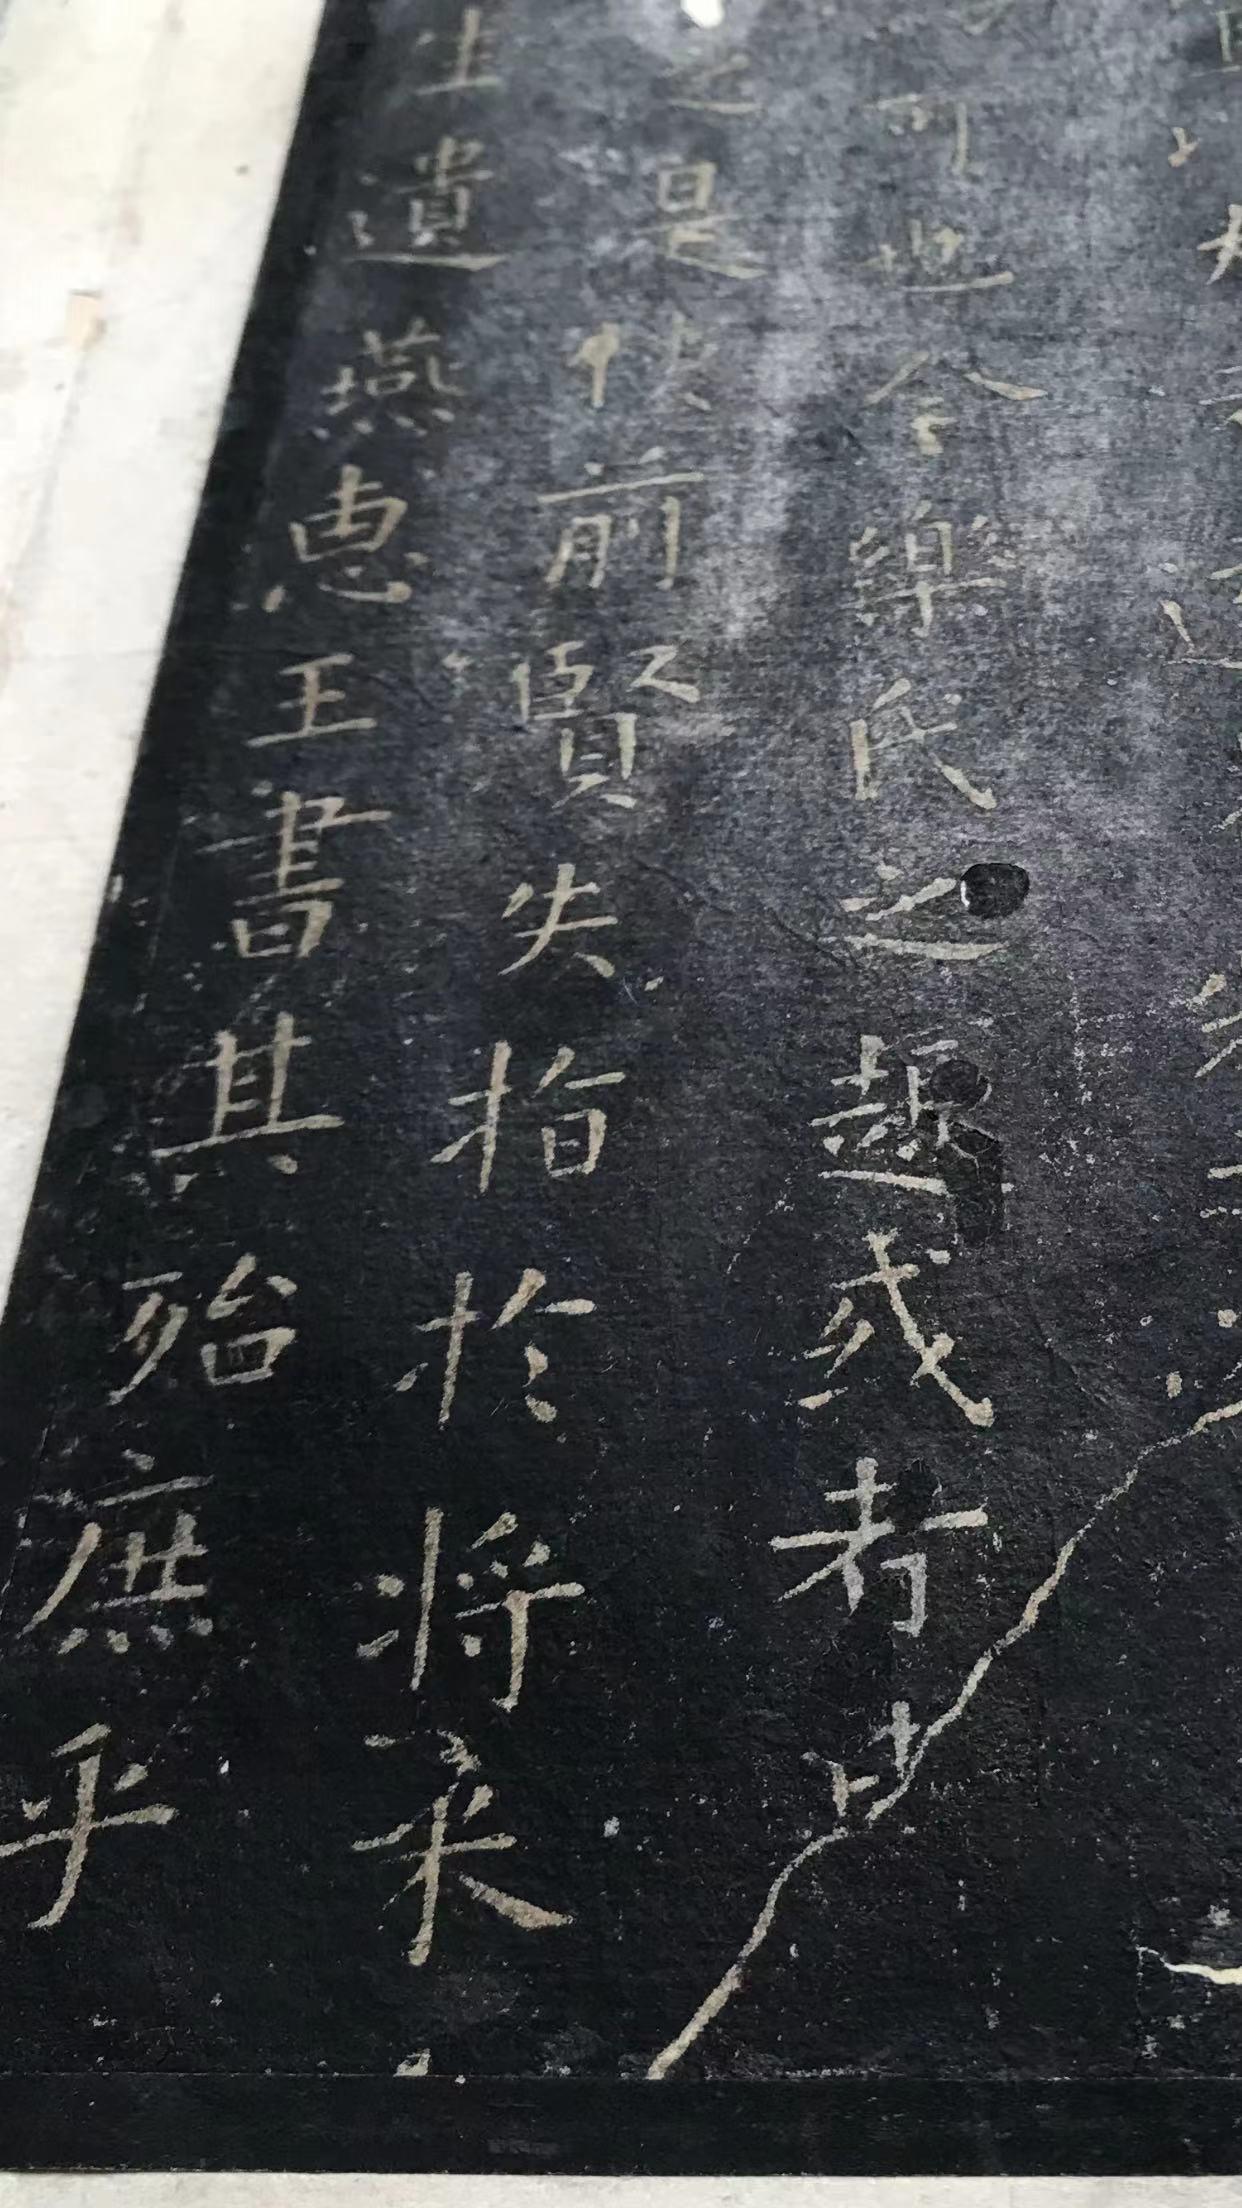 可也今樂氏之趣或者
之是使前賢失指於將来
生遺燕惠王書其殆庶乎